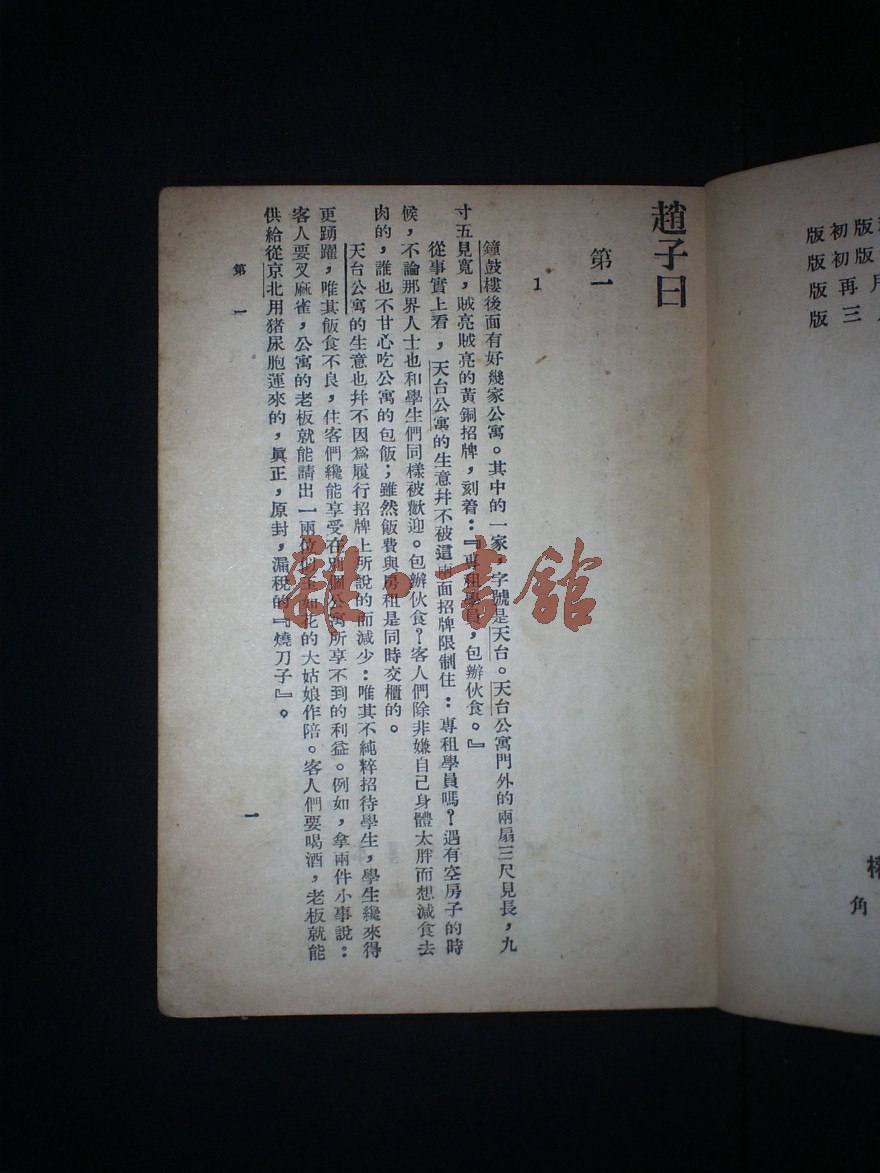 趙子曰
第一
1
鐘鼓樓後面有好幾家公寓。其中的一家，字號是天台。天台公寓門外的兩扇三尺見長，九
寸五見寬，賊亮賊亮的黃銅招牌，刻着：『專租學員，包辦伙食。』
從事實上看，天台公寓的生意幷不被這兩面招牌限制住：專租學員嗎？遇有空房子的時
候，不論那界人士也和學生們同樣被歡迎。包辦伙食？客人們除非嫌自己身體太胖而想減食去
肉的，誰也不甘心吃公寓的包飯；雖然飯費與房租是同時交櫃的。
天台公寓的生意也幷不因爲履行招牌上所說的而減少：唯其不純粹招待學生，學生纔來得
更踴躍，唯其飯食不良，住客們纔能享受在別個公寓所享不到的利益。例如，拿兩件小事說：
客人要叉麻雀，公寓的老板就能請出一兩位似玉如花的大姑娘作陪。客人們要喝酒，老板就能
供給從京北用猪尿胞運來的，眞正，原封，漏稅的『燒刀子』。
第一
一
版初版
版初版
版再月
版三
角
雜·書館